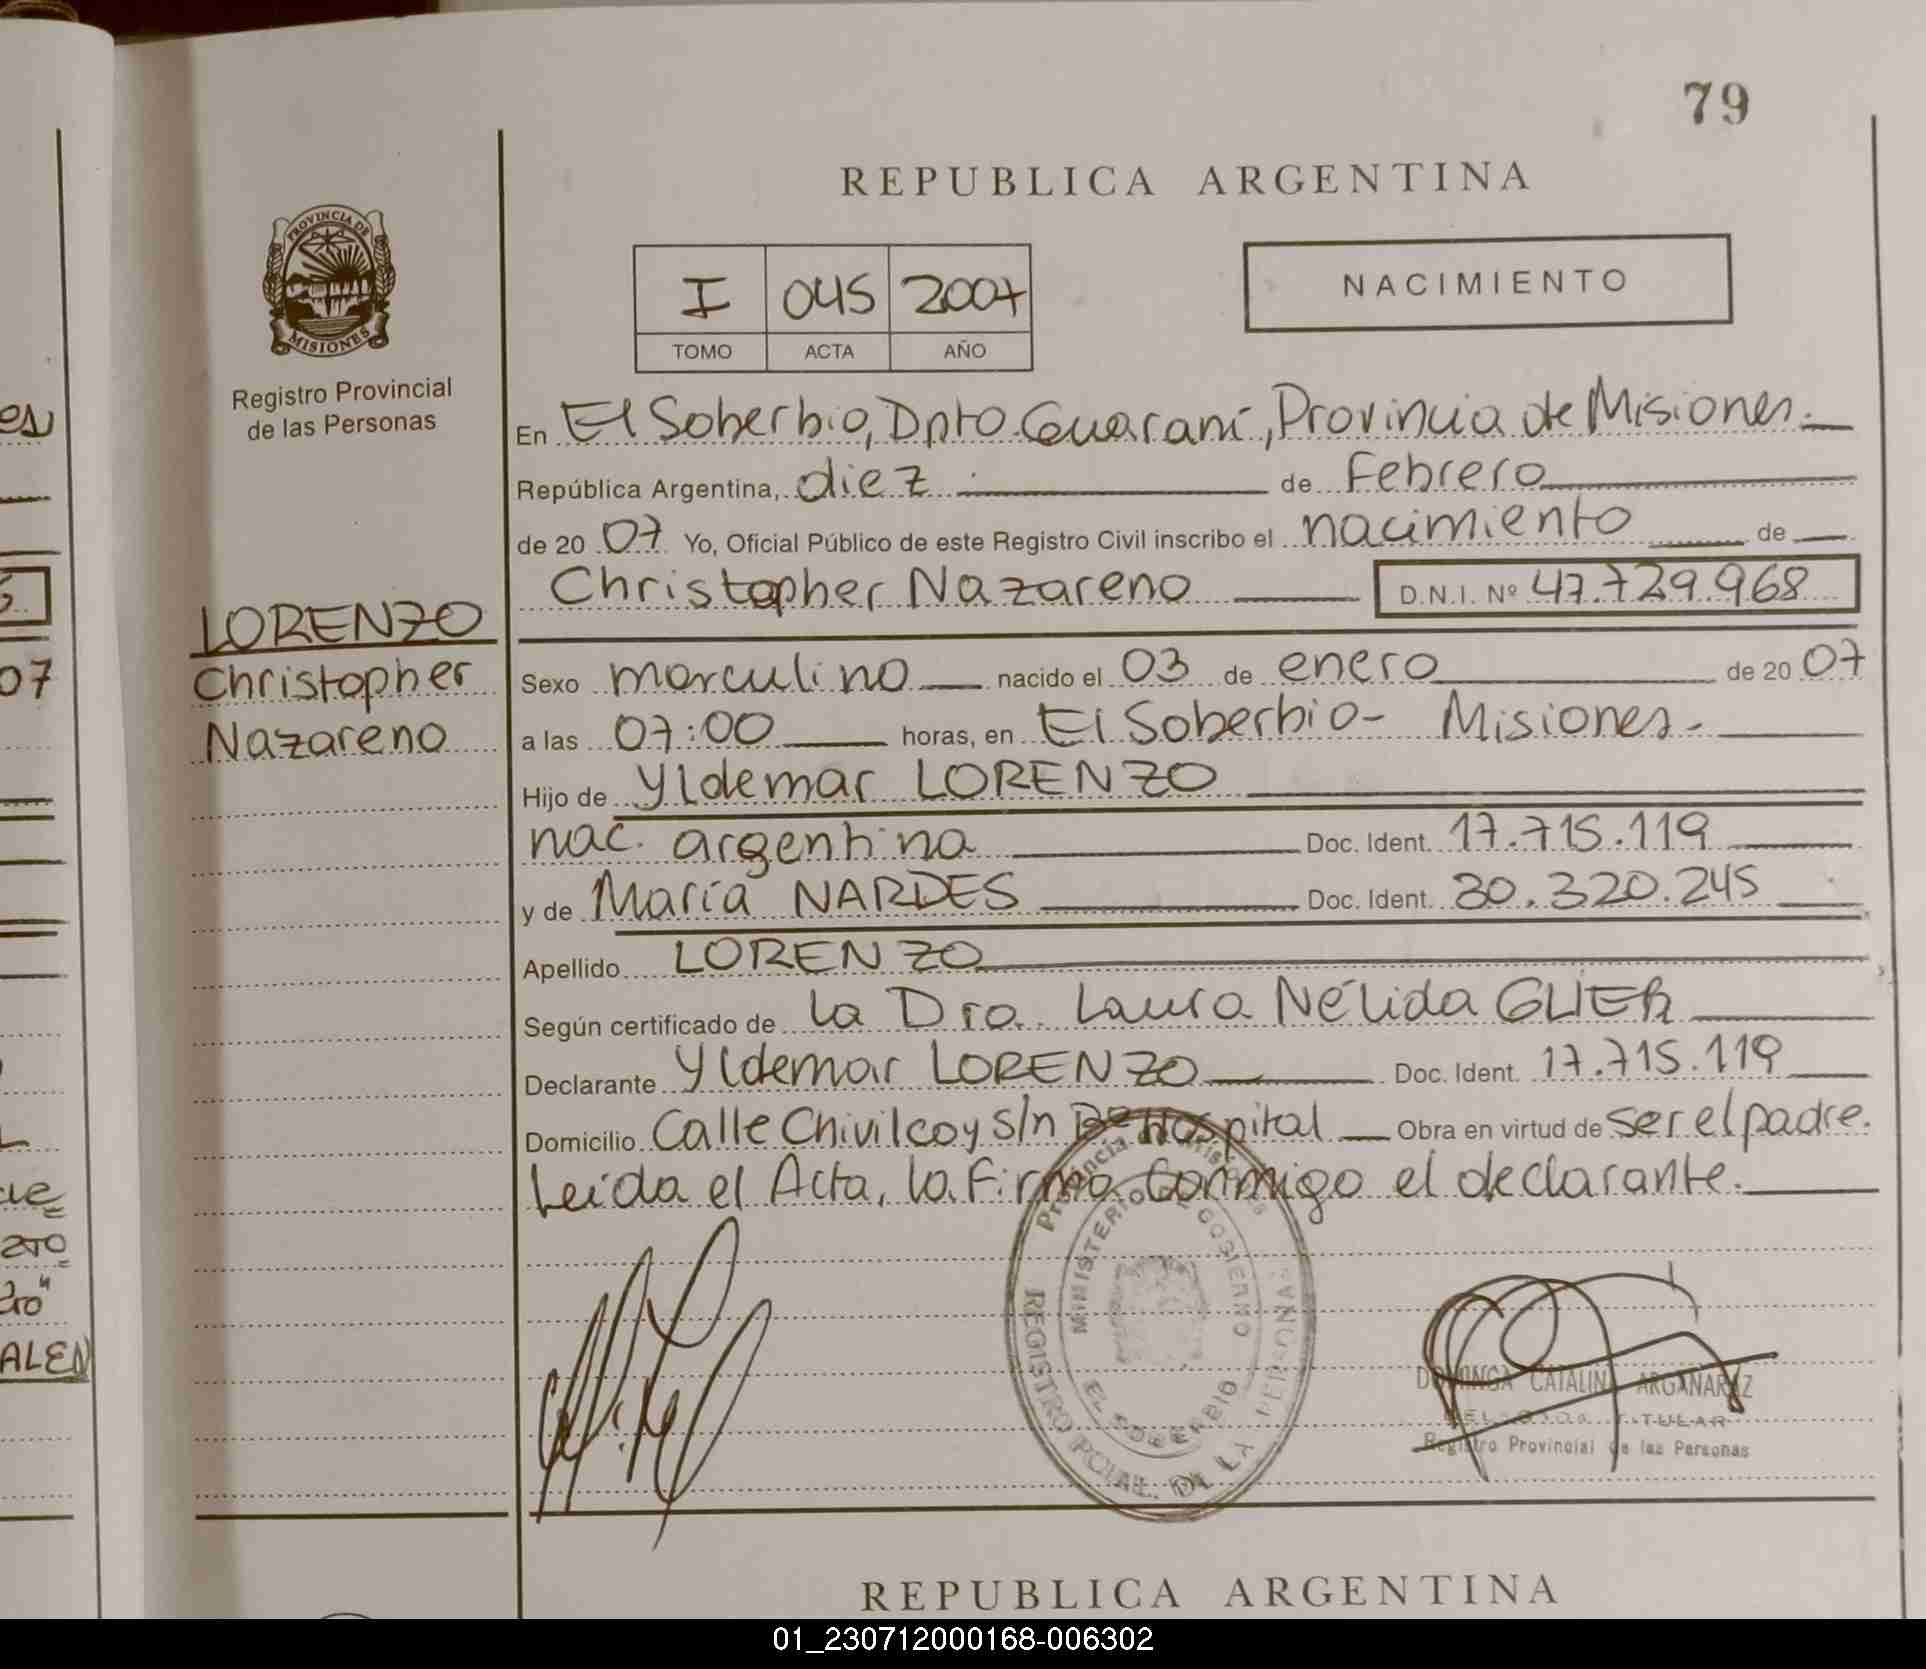 79
REPUBLICA ARGENTINA
PROVINCIA DE
MISIONES
Registro Provincial
de las Personas
I 045 2007
TOMO ACTA AÑO
NACIMIENTO
En El Soberbio, Dpto. Guaraní, Provincia de Misiones.
República Argentina, diez de Febrero
de 20 07 Yo, Oficial Público de este Registro Civil inscribo el nacimiento de
Christopher Nazareno D.N.I. Nº 47.729.968
LORENZO
Christopher
Nazareno
Sexo masculino nacido el 03 de enero de 20 07
a las 07:00 horas, en El Soberbio - Misiones.
Hijo de Yldemar LORENZO
nac. argentina Doc. Ident. 17.715.119
y de María NARDES Doc. Ident. 30.320.245
Apellido LORENZO
Según certificado de la Dra. Laura Nélida GLIER
Declarante Yldemar LORENZO Doc. Ident. 17.715.119
Domicilio Calle Chivilcoy s/n Bº Hospital Obra en virtud de ser el padre.
Leída el Acta, la Firma Conmigo el declarante.
Provincia de Misiones
MINISTERIO DE GOBIERNO
EL SOBERBIO
REGISTRO PCIAL. DE LA PERSONAS
DOMINGA CATALINA ARGAÑARAZ
TITULAR
Registro Provincial de las Personas
REPUBLICA ARGENTINA
es
07
ALEN
01_230712000168-006302